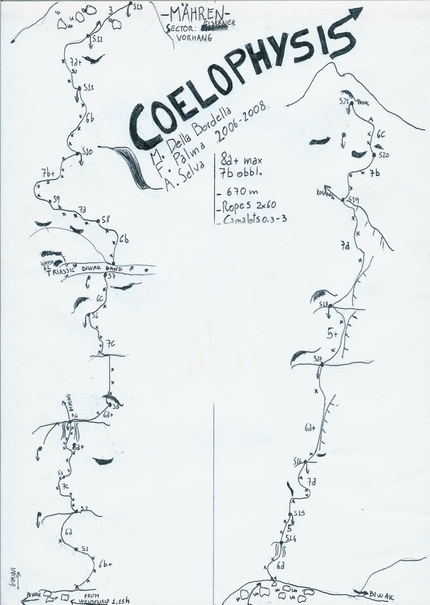 -MÄHREN-
SECTOR: EISERNER
VORHANG
COELOPHYSIS
M. Della Bordella
F. Palma 2006-2008
A. Selva
8a+ max
7b obbl.
- 670 m
- Ropes 2x60
- Camalots 0.3-3
S13
3
S12
7a+
S11
6b
S10
7b+
S9
7a
S8
6b
TRIASSIC BIWAK BAND
S7
6c
S6
7c
S5
6a+
S4
8a+
S3
7c
S2
6a
S1
6b+
BIWAK
FROM
1.15h
S21
6c
S20
7b
S19
7a
S18
5+
S17
6a+
S16
7a
S15
5
S14
6a
BIWAK